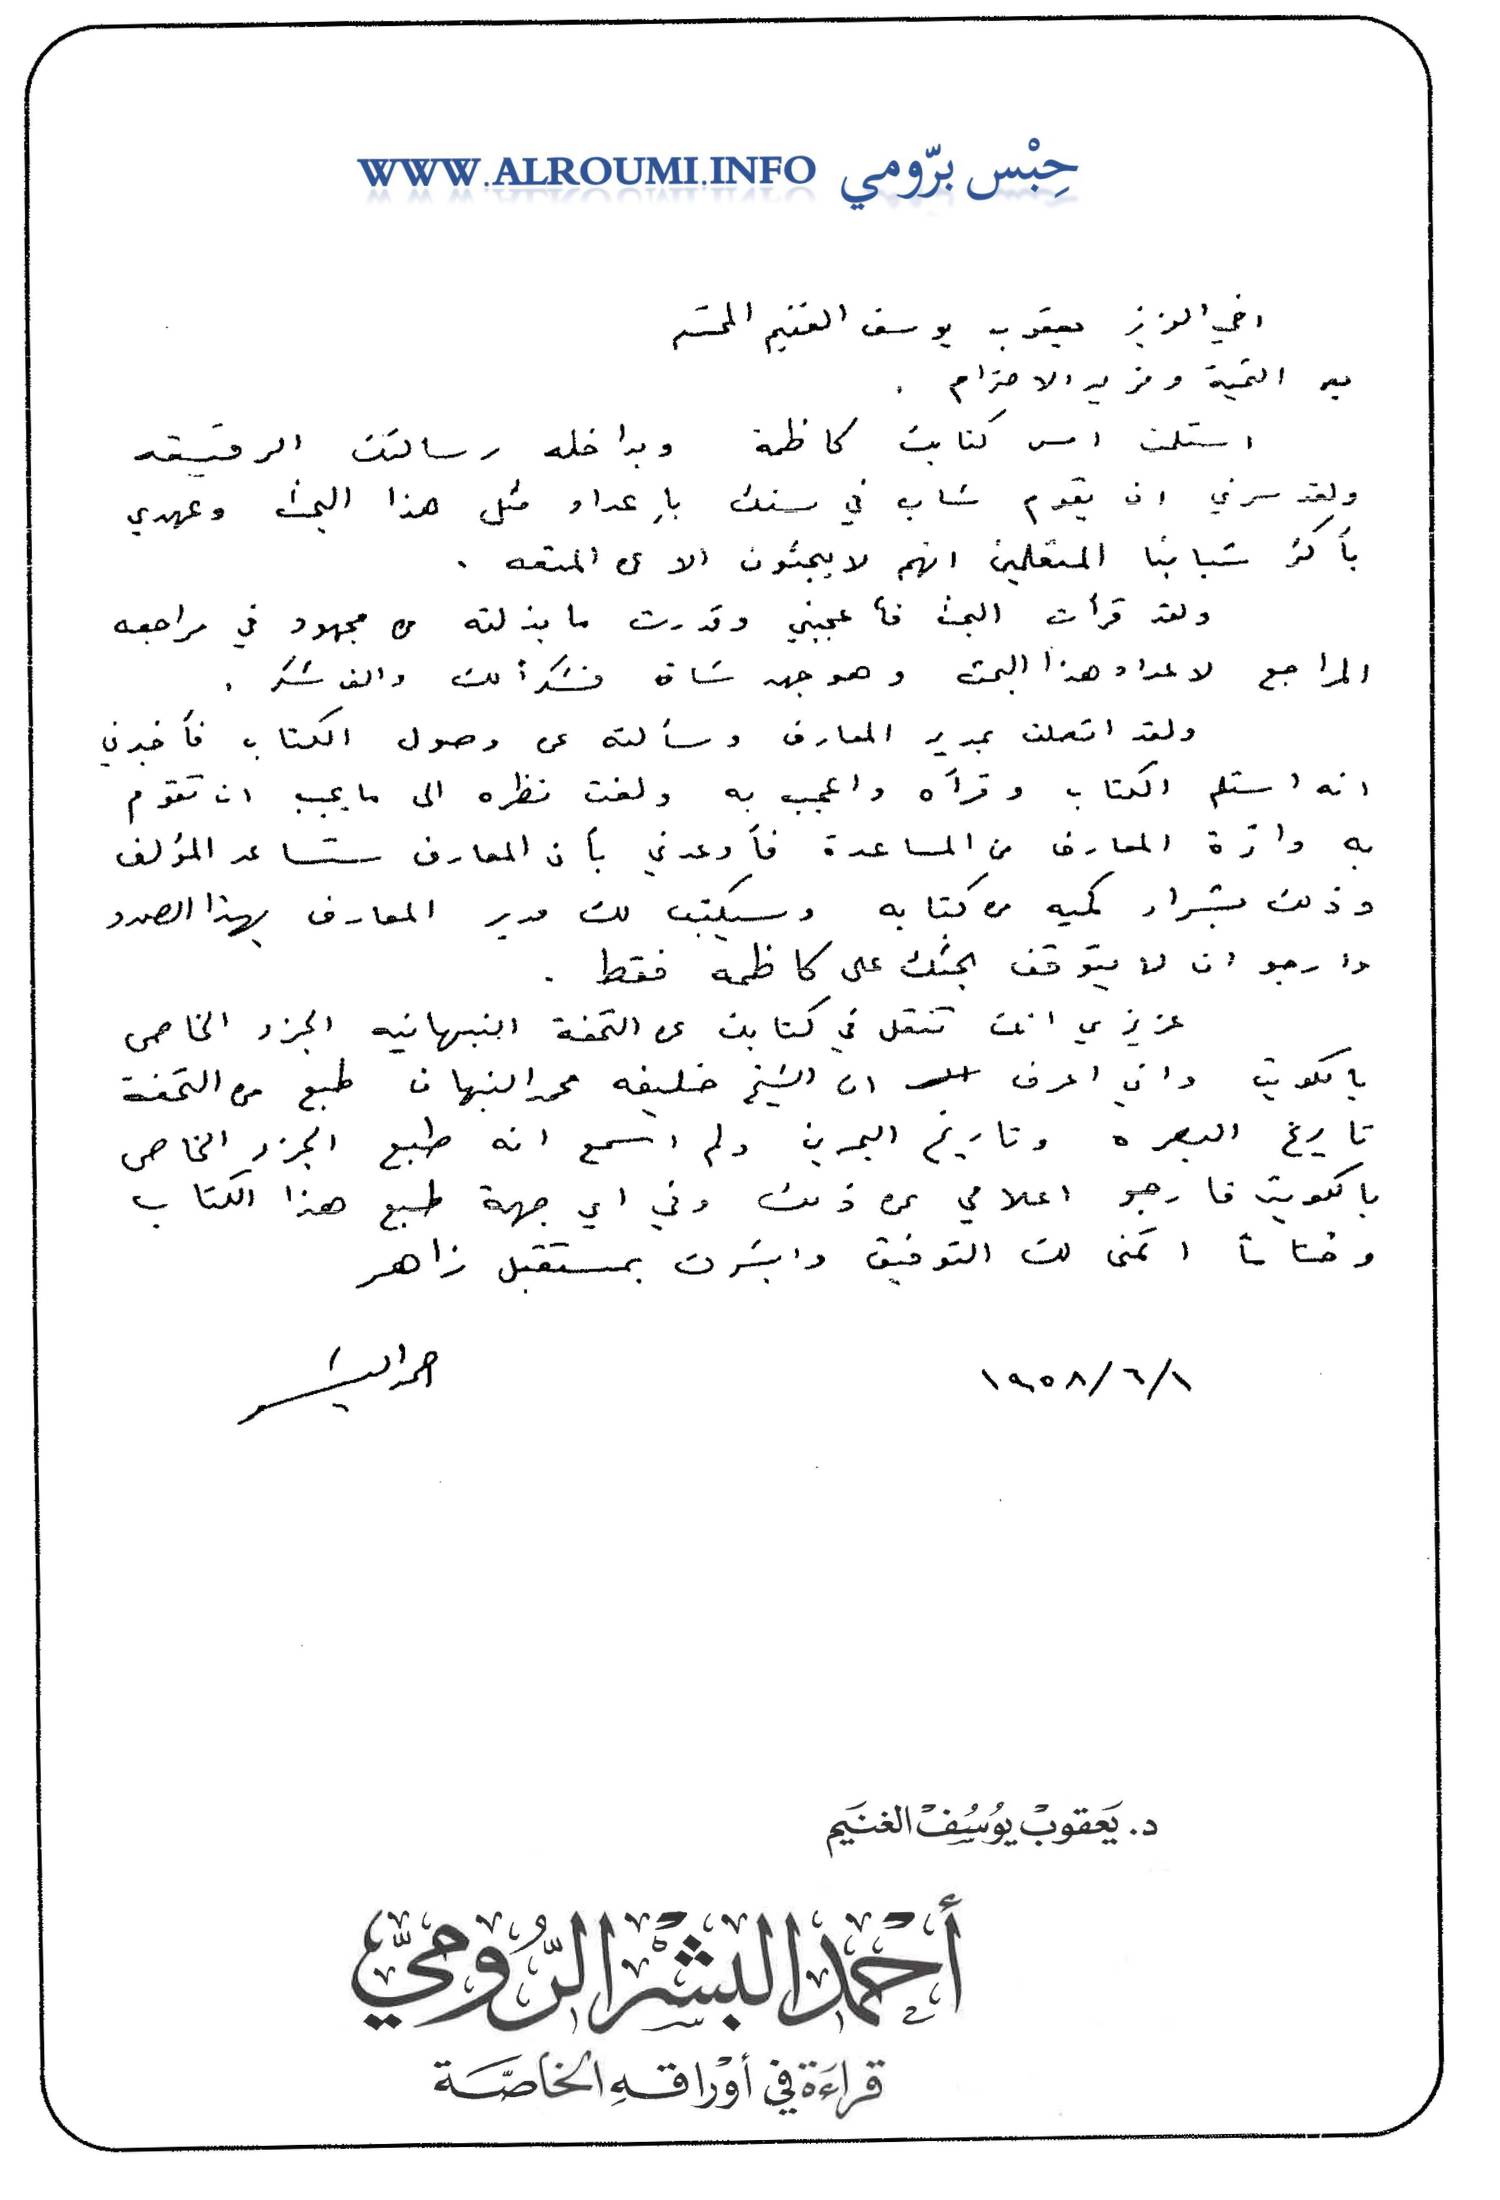 حِبْس برّومي WWW.ALROUMI.INFO
اخي العزيز يعقوب يوسف الغنيم المحترم
بعد التحية ومزيد الاحترام .
استلمت امس كتابك كاظمة وبداخله رسالتك الرقيقه
ولقد سرني ان يقوم شاب في سنك بإعداد مثل هذا البحث وعهدي
بأكثر شبابنا المتعلمين انهم لا يبحثون الا عن المتعه .
ولقد قرأت البحث فأعجبني وقدرت ما بذلته من مجهود في مراجعه
المراجع لاعداد هذا البحث وهو جهد شاق فشكراً لك والف شكر .
ولقد اتصلت بمدير المعارف وسألته عن وصول الكتاب فأخبرني
انه استلم الكتاب وقرأه واعجب به ولفت نظره الى ما يجب ان تقوم
به دائرة المعارف من المساعدة فأوعدني بأن المعارف ستساعد المؤلف
وذلك بشراء كميه من كتابه وسيكتب لك مدير المعارف بهذا الصدد
وارجو ان لا يتوقف بحثك على كاظمه فقط .
عزيزي انك تنقل في كتابك عن التحفة النبهانيه الجزء الخاص
بالكويت واني اعرف ان الشيخ خليفه محمد النبهان طبع من التحفة
تاريخ البصره وتاريخ البحرين ولم اسمع انه طبع الجزء الخاص
بالكويت فارجو اعلامي عن ذلك وفي اي جهة طبع هذا الكتاب
وختاماً اتمنى لك التوفيق وابشرك بمستقبل زاهر
١/٦/١٩٥٨ احمد البشر
د. يَعقوبْ يوُسُفْ الغنَيم
أحْمد البشْر الرّوُميّ
قراءَة في أوْراقهِ الخاصَّة